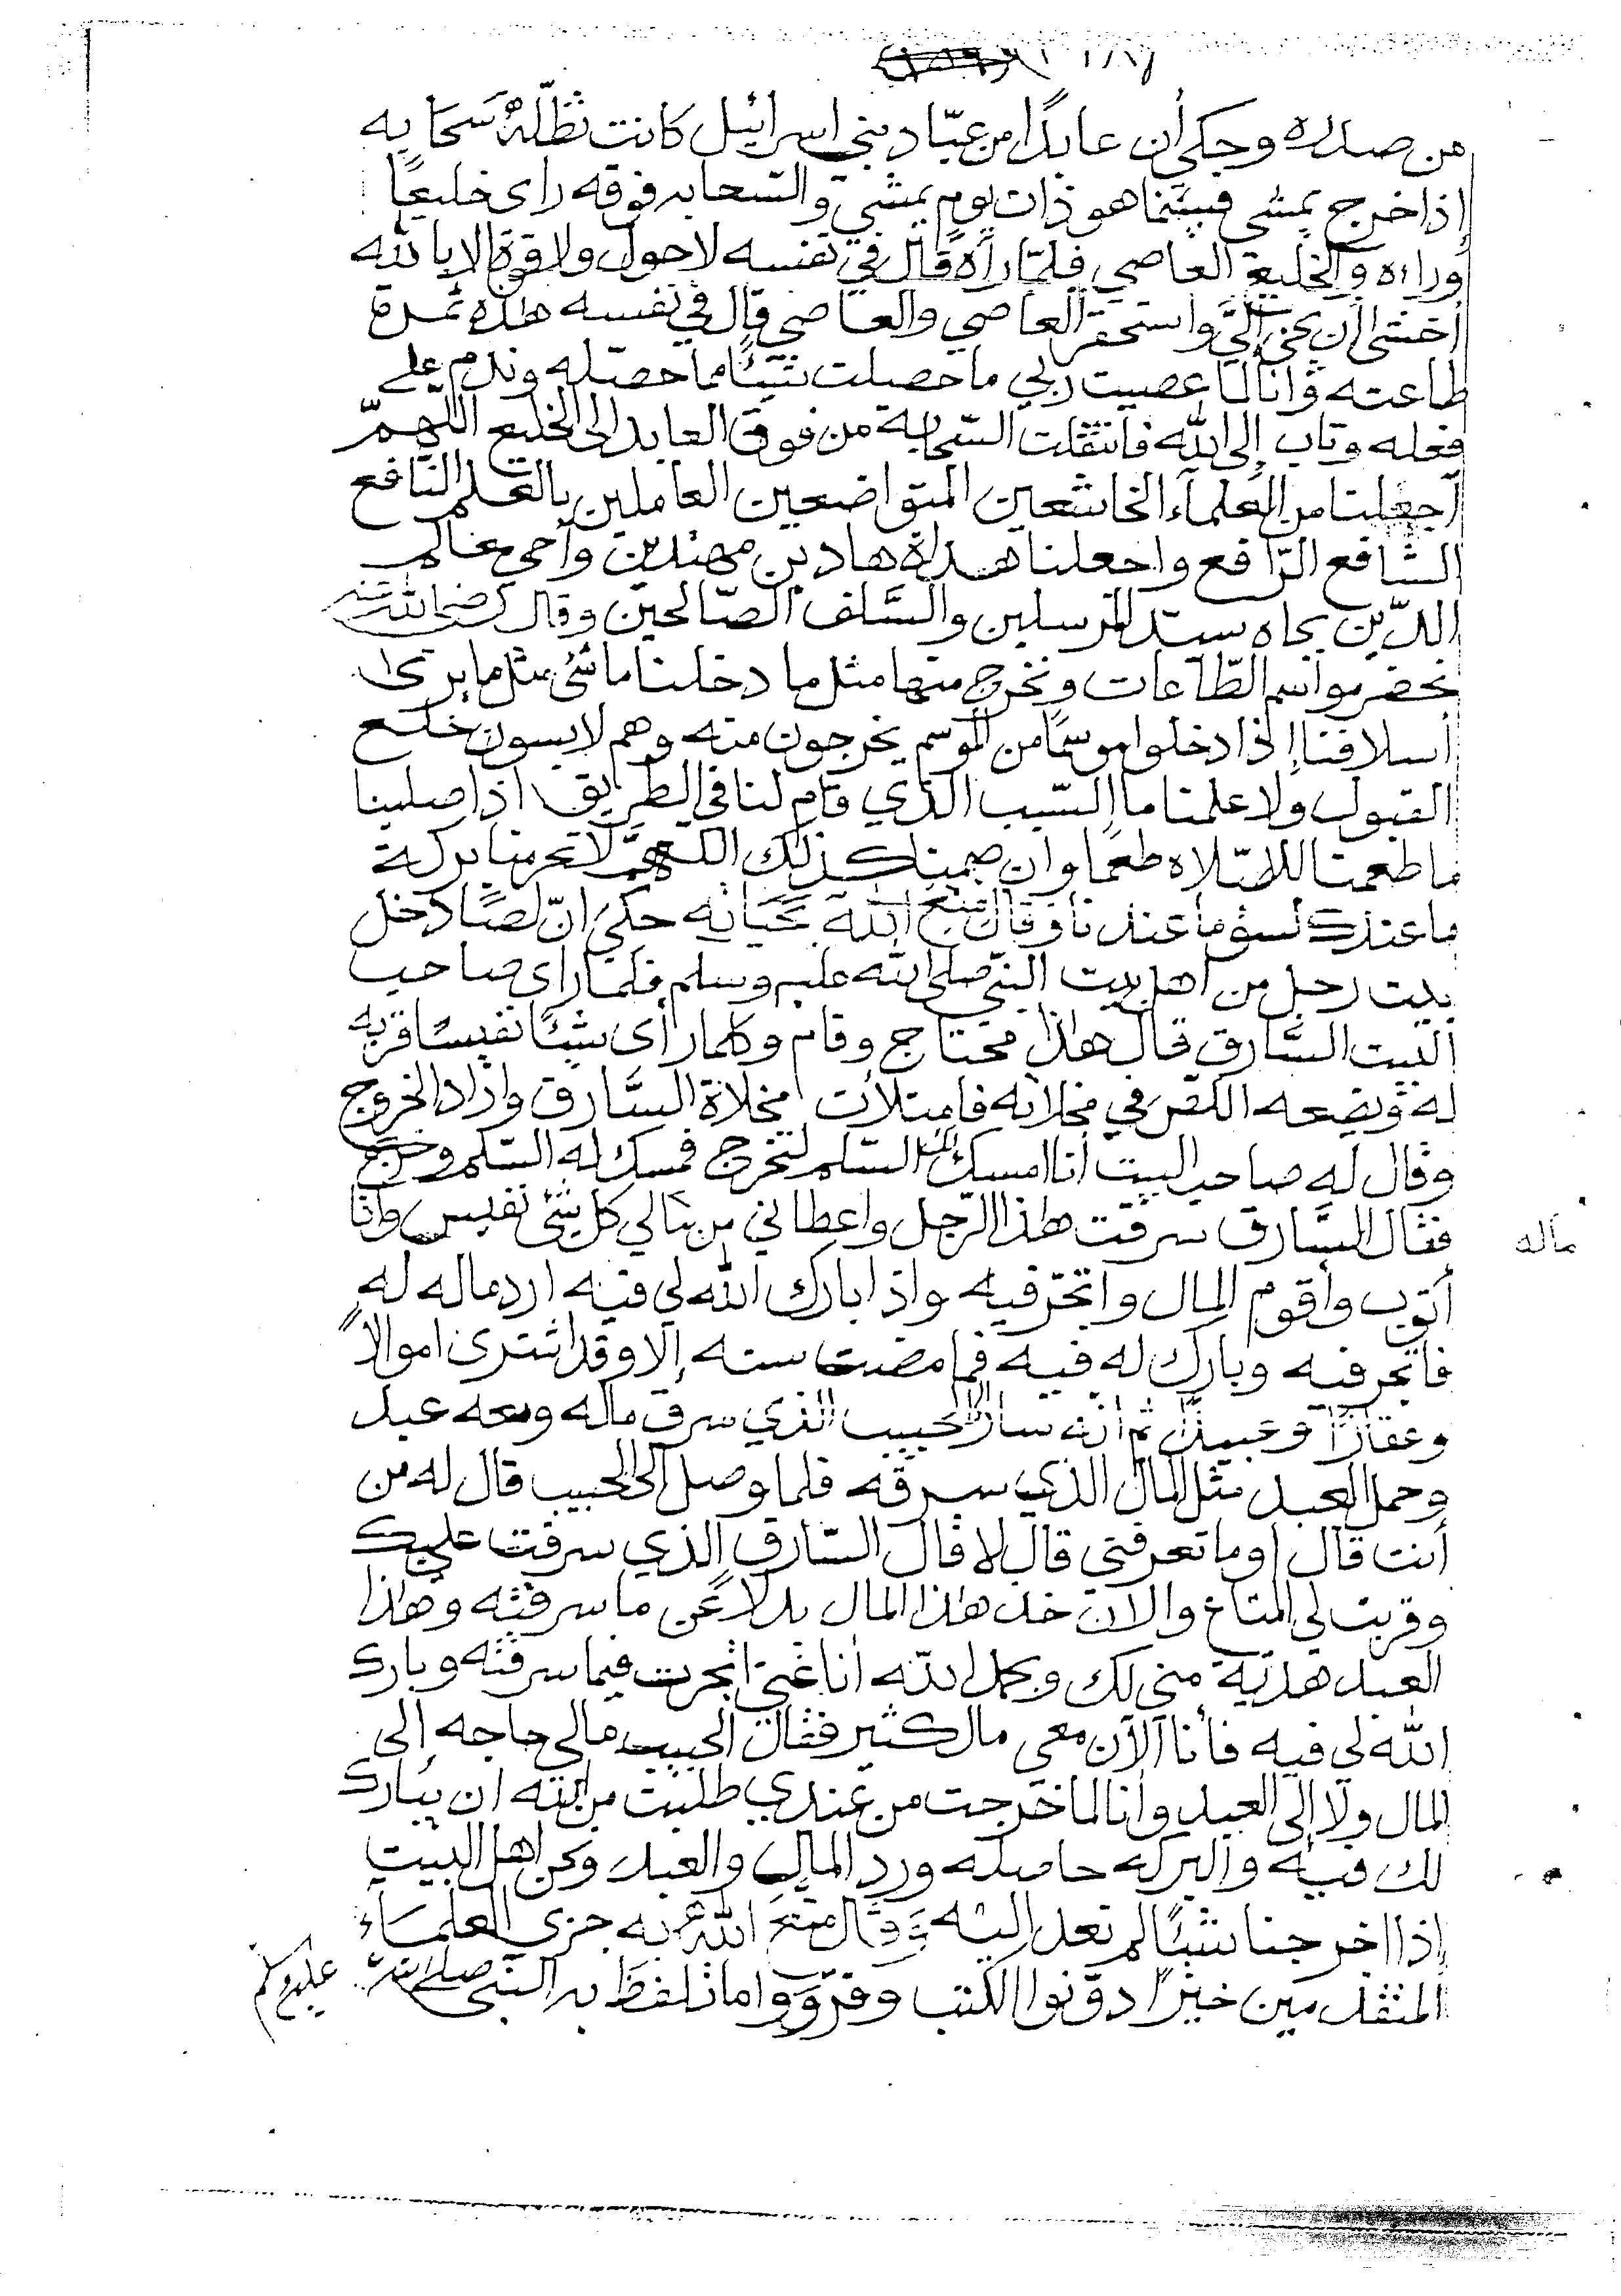 من صدره وحكي أن عابدًا من عبّاد بني اسرائيل كانت تظلّهُ سَحَابه
إذا خرج يمشي فبينما هو ذات يوم يمشي والسّحابه فوقه راى خليعًا
وراءه والخليع العاصي فلمّا رآه قال في نفسه لا حول ولا قوة الا بالله
أخشى أن يجي إليَّ واستحقر العاصي والعاصي قال في نفسه هذه ثمرة
طاعته وأنا لما عصيت ربي ما حصلت شيئًا مما حصّله وندم على
فعله وتاب إلى الله فانتقلت السّحابة من فوق العابد إلى الخليع اللهمّ
آجعلنا من العلمآء الخاشعين المتواضعين العاملين بالعلم النّافع
الشّافع الرّافع واجعلنا هداة هادين مهتدين وأحي معالم
الدّين بجاه سيّد المرسلين والسَّلف الصّالحين وقال رضي الله عنه
نحضر مواسم الطّاعات ونخرج منها مثل ما دخلنا ماشي مثل ما يرى
أسلافنا إذا دخلوا موسمًا من الموسم يخرجون منه وهم لابسون خلع
القبول ولا علمنا ما السّبب الذي قام لنا في الطّريق اذا صلينا
ما طعمنا للصّلاه طعمًا وان صمنا كذلك اللهمَّ لا تحرمنا بركة
ما عندك لسوء ما عندنا وقال متع الله بحياته حكي انّ لصًا دخل
بيت رجل من أهل بيت النبي صلى الله عليه وسلم فلمّا راى صاحب
البيت السَّارق قال هذا محتاج وقام وكلما رأى شيئًا نفيسًا قربه
له ويضعه اللص في مخلاته فامتلأت مخلاة السَّارق واراد الخروج
وقال له صاحب البيت أنا امسك لك السّلم لتخرج فمسك له السّلم وخرج
فقال السَّارق سرقت هذا الرّجل واعطاني من مالي كل شيْ نفيس وأنا
ماله
أتوب وأقوم المال واتجر فيه واذا بارك الله لي فيه ارد ماله له
فاتجر فيه وبارك له فيه فما مضت سنه إلا وقد اشترى اموالاً
وعقارًا وعبيدًا ثم أنه سار إلى الحبيب الذي سرق ماله ومعه عبد
وحمل العبد مثل المال الذي سرقه فلما وصل الى الحبيب قال له من
أنت قال اوما تعرفني قال لا قال السّارق الذي سرقت عليك
وقربت لي المتاع والآن خذ هذا المال بدلاً عن ما سرقته وهذا
العبد هديّة مني لك وبحمد الله أنا غني اتجرت فيما سرقته وبارك
الله لي فيه فأنا الآن معي مال كثير فقال الحبيب مالي حاجه إلى
المال ولا إلى العبد وأنا لما خرجت من عندي طلبت من الله ان يبارك
لك فيه والبركه حاصله ورد المال والعبد ونحن اهل البيت
إذا اخرجنا شيئًا لم نعد إليه وقال متع الله به جزى العلمَاء
المتقدمين خيرًا دوّنوا الكتب وقرّروا ما تلفظ به النّبي صلى الله عليه وسلم